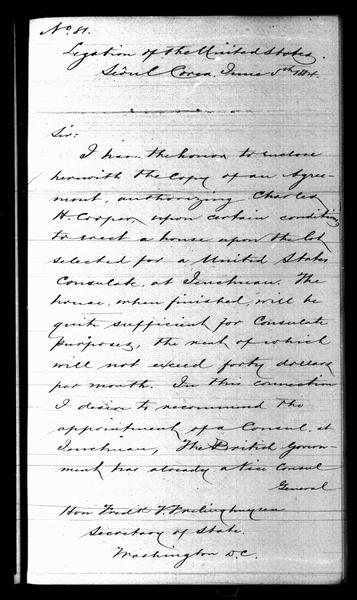 No. 81.
Legation of the United States.
Seôul Corea June 5th 1884.
Sir:
I have the honor to enclose
herewith the copy of an Agree-
ment, authorizing Charles
H. Cooper, upon certain conditions
to erect a house upon the lot
selected for a United States
Consulate, at Jenchuan. The
house, when finished, will be
quite sufficient for Consulate
purposes, the rent of which
will not exceed forty dollars
per month. In this connection
I desire to recommend the
appointment of a Consul at
Jenchuan, The British Govern-
ment has already a Vice Consul
General
Hon Fredk T. Frelinghuysen
Secretary of State.
Washington D.C.